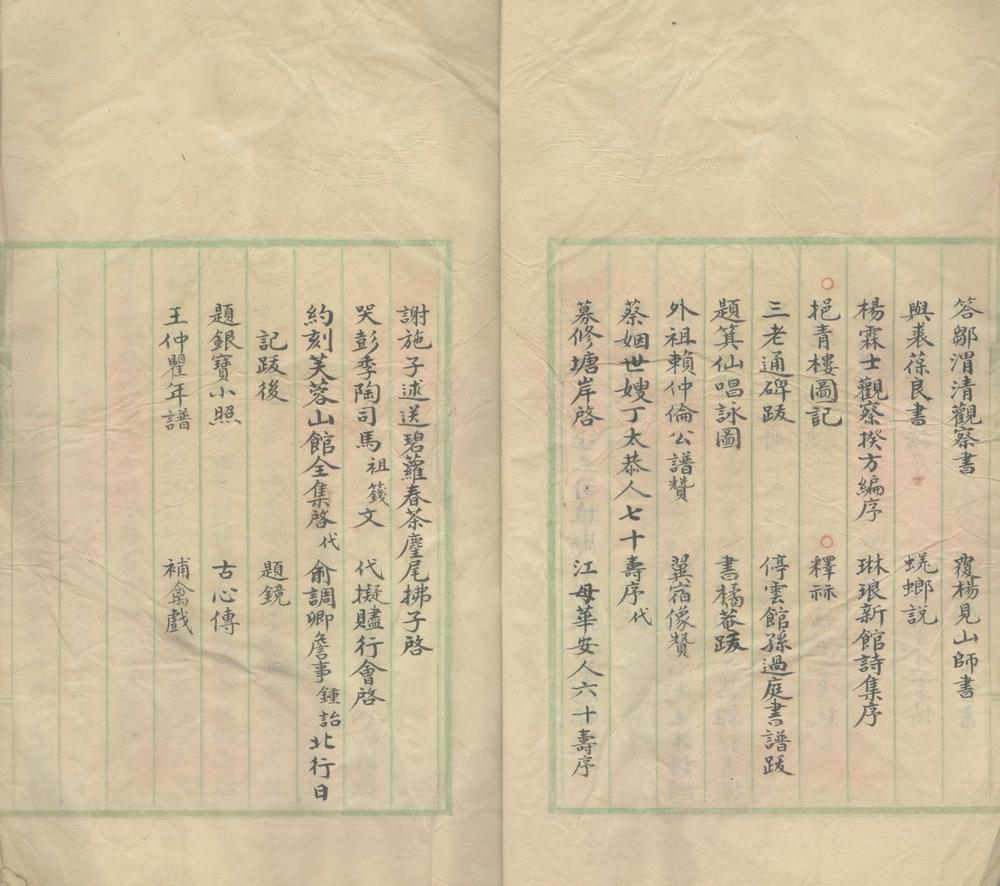 答鄒渭清觀察書　覆楊見山師書
與裘葆良書　蜣螂說
楊霖士觀察揆方編序　琳琅新館詩集序
挹青樓圖記　釋祘
三老通碑跋　停雲館孫過庭書譜跋
題箕仙唱詠圖　書橘菴跋
外祖賴仲倫公譜贊　翼宿像贊
蔡姻世嫂丁太恭人七十壽序代
募修塘岸啓　江母華安人六十壽序
謝施子述送碧蘿春茶麈尾拂子啓
哭彭季陶司馬祖籛文　代擬贐行會啓
約刻芙蓉山館全集啓代　俞調卿詹事鍾詒北行日
記跋後　題鏡
題銀寶小照　古心傳
王仲瞿年譜　補禽戲